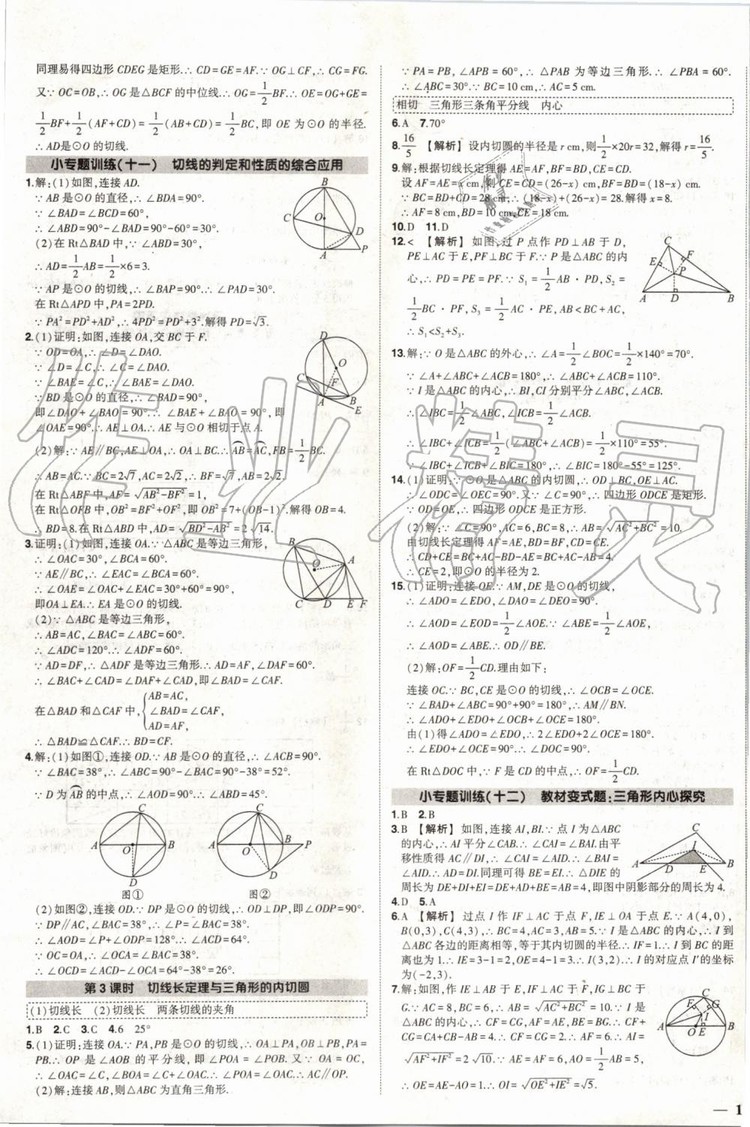 同理易得四边形 CDEG 是矩形.∴ CD=GE=AF.∵ OG⊥CF,∴ CG=FG.
又∵ OC=OB,∴ OG 是△BCF 的中位线.∴ OG=1/2BF.∴ OE=OG+GE=
1/2BF+1/2(AF+CD)=1/2(AB+CD)=1/2BC,即 OE 为⊙O 的半径.
∴ AD是⊙O 的切线.
小专题训练(十一) 切线的判定和性质的综合应用
1.解:(1)如图,连接 AD.
∵ AB 是⊙O 的直径,∴ ∠BDA=90°.
∵ ∠BAD=∠BCD=60°,
∴ ∠ABD=90°-∠BAD=90°-60°=30°.
(2)在 Rt△BAD 中,∵ ∠ABD=30°,
∴ AD=1/2AB=1/2×6=3.
∵ PA 是⊙O 的切线,∴ ∠BAP=90°.∴ ∠PAD=30°.
在 Rt△APD 中,PA=2PD.
∵ PA²=PD²+AD²,∴ 4PD²=PD²+3².解得 PD=√3.
2.(1)证明:如图,连接 OA,交 BC 于 F.
∵ OD=OA,∴ ∠D=∠DAO.
∵ ∠D=∠C,∴ ∠C=∠DAO.
∵ ∠BAE=∠C,∴ ∠BAE=∠DAO.
∵ BD 是⊙O 的直径,∴ ∠BAD=90°,
即∠DAO+∠BAO=90°.∴ ∠BAE+∠BAO=90°,即
∠OAE=90°.∴ AE⊥OA.∴ AE 与⊙O 相切于点 A.
(2)解:∵ AE∥BC,AE⊥OA,∴ OA⊥BC.∴ AB=AC,FB=1/2BC.
∴ AB=AC.∵ BC=2√7,AC=2√2,∴ BF=√7,AB=2√2.
在 Rt△ABF 中,AF=√AB²-BF²=1,
在 Rt△OFB 中,OB²=BF²+OF²,即 OB²=7+(OB-1)².解得 OB=4.
∴ BD=8.在 Rt△ABD 中,AD=√BD²-AB²=2√14.
3.证明:(1)如图,连接 OA.∵ △ABC 为等边三角形,
∴ ∠OAC=30°,∠BCA=60°.
∵ AE∥BC,∴ ∠EAC=∠BCA=60°.
∴ ∠OAE=∠OAC+∠EAC=30°+60°=90°,
即OA⊥EA.∴ AE 是⊙O 的切线.
(2)∵ △ABC 是等边三角形,
∴ AB=AC,∠BAC=∠ABC=60°.
∴ ∠ADC=120°,∴ ∠ADF=60°.
∵ AD=DF,∴ △ADF 是等边三角形.∴ AD=AF,∠DAF=60°.
∴ ∠BAC+∠CAD=∠DAF+∠CAD,即∠BAD=∠CAF.
在△BAD 和△CAF 中,{AB=AC,
∠BAD=∠CAF,
AD=AF,
∴ △BAD≌△CAF.∴ BD=CF.
4.解:(1)如图①,连接 OD.∵ AB 是⊙O 的直径,∴ ∠ACB=90°.
∵ ∠BAC=38°,∴ ∠ABC=90°-∠BAC=90°-38°=52°.
∵ D 为AB的中点,∠AOB=180°,∴ ∠AOD=90°.∴ ∠ABD=45°.
图① 图②
(2)如图②,连接 OD.∵ DP 是⊙O 的切线,∴ OD⊥DP,即∠ODP=90°.
∵ DP∥AC,∠BAC=38°,∴ ∠P=∠BAC=38°.
∴ ∠AOD=∠P+∠ODP=128°.∴ ∠ACD=64°.
∵ OC=OA,∠BAC=38°,∴ ∠OCA=∠BAC=38°.
∴ ∠OCD=∠ACD-∠OCA=64°-38°=26°.
第 3 课时 切线长定理与三角形的内切圆
(1)切线长 (2)切线长 两条切线的夹角
1.B 2.C 3.C 4.6 25°
5.(1)证明:如图,连接 OB.∵ PA,PB 是⊙O 的切线,∴ OA⊥PA,OB⊥PB,PA=
PB.∴ OP 是∠AOB 的平分线,即∠POA=∠POB.又∵ OA=OC,
∴ ∠OAC=∠C.∵ ∠BOA=∠C+∠OAC,∴ ∠POA=∠OAC.∴ AC∥OP.
(2)解:连接 AB,则△ABC 为直角三角形.
∵ PA=PB,∠APB=60°,∴ △PAB 为等边三角形.∴ ∠PBA=60°.
∴ ∠ABC=30°.∵ BC=10 cm,∴ AC=5 cm.
相切 三角形三条角平分线 内心
6.A 7.70°
8.16/5 【解析】设内切圆的半径是 r cm,则1/2×20r=32,解得 r=16/5.
9.解:根据切线长定理得 AE=AF,BF=BD,CE=CD.
设 AF=AE=x cm,则 CE=CD=(26-x) cm,BF=BD=(18-x) cm.
∵ BC=BD+CD=28 cm,∴ (18-x)+(26-x)=28.解得 x=8.
∴ AF=8 cm,BD=10 cm,CE=18 cm.
10.D 11.D
12.< 【解析】如图,过 P 点作 PD⊥AB 于 D,
PE⊥AC 于 E,PF⊥BC 于 F.∵ P 是△ABC 的内
心,∴ PD=PE=PF.∵ S₁=1/2AB·PD,S₂=
1/2BC·PF,S₃=1/2AC·PE,AB<BC+AC,
∴ S₁<S₂+S₃.
13.解:∵ O 是△ABC 的外心,∴ ∠A=1/2∠BOC=1/2×140°=70°.
∵ ∠A+∠ABC+∠ACB=180°,∴ ∠ABC+∠ACB=110°.
∵ I 是△ABC 的内心,∴ BI,CI 分别平分∠ABC,∠ACB.
∴ ∠IBC=1/2∠ABC,∠ICB=1/2∠ACB.
∴ ∠IBC+∠ICB=1/2(∠ABC+∠ACB)=1/2×110°=55°.
∴ ∠BIC=180°-(∠IBC+∠ICB)=180°-55°=125°.
14.(1)证明:∵ ⊙O 是△ABC 的内切圆,∴ OD⊥BC,OE⊥AC.
∴ ∠ODC=∠OEC=90°.又∵ ∠C=90°,∴ 四边形 ODCE 是矩形.
∵ OD=OE,∴ 四边形 ODCE 是正方形.
(2)解:∵ ∠C=90°,AC=6,BC=8,∴ AB=√AC²+BC²=10.
由切线长定理得 AF=AE,BD=BF,CD=CE.
∴ CD+CE=BC+AC-BD-AE=BC+AC-AB=4.
∴ CE=2,即⊙O 的半径为 2.
15.(1)证明:连接 OE.∵ AM,DE 是⊙O 的切线,
∴ ∠ADO=∠EDO,∠DAO=∠DEO=90°.∴ ∠AOD=∠EOD=1/2∠AOE.
∴ ∠AOD=∠ABE.∴ OD∥BE.
(2)解:OF=1/2CD.理由如下:
连接 OC.∵ BC,CE 是⊙O 的切线,∴ ∠OCB=∠OCE.
∵ ∠BAD+∠ABC=90°+90°=180°,∴ AM∥BN.
∴ ∠ADO+∠EDO+∠OCB+∠OCE=180°.
由(1)得∠ADO=∠EDO,∴ 2∠EDO+2∠OCE=180°.
∴ ∠EDO+∠OCE=90°.∴ ∠DOC=90°.
在 Rt△DOC 中,∵ F 是 CD 的中点,∴ OF=1/2CD.
小专题训练(十二) 教材变式题:三角形内心探究
1.B 2.B
3.B 【解析】如图,连接 AI,BI.∵ 点 I 为△ABC
的内心,∴ AI 平分∠CAB.∴ ∠CAI=∠BAI.由平
移性质得 AC∥DI,∴ ∠CAI=∠AID.∴ ∠BAI=
∠AID.∴ AD=DI.同理可得 BE=EI.∴ △DIE 的
周长为 DE+DI+EI=DE+AD+BE=AB=4,即图中阴影部分的周长为 4.
4.D 5.A
6.A 【解析】过点 I 作 IF⊥AC 于点 F,IE⊥OA 于点 E.∵ A(4,0),
B(0,3),C(4,3),∴ BC=4,AC=3,AB=5.∵ I 是△ABC 的内心,∴ I 到
△ABC 各边的距离相等,等于其内切圆的半径.∴ IF=1.∴ I 到 BC 的距离
也为 1.∴ AE=3-1=2,OE=4-1=3.∴ I(3,2).∴ I 的对应点 I′的坐标
为(-2,3).
7.解:如图,作 IE⊥AB 于 E,IF⊥AC 于 F,IG⊥BC 于
G.∵ AC=8,BC=6,∴ AB=√AC²+BC²=10.∵ I 是
△ABC 的内心,∴ CF=CG,AF=AE,BE=BG.∴ CF+
CG=CA+CB-AB=4.∴ CF=CG=IE=2.∴ AI=
√AF²+IF²=2√10.∵ AE=AF=6,AO=1/2AB=5,
∴ OE=AE-AO=1.∴ OI=√OE²+IE²=√5.
— 1